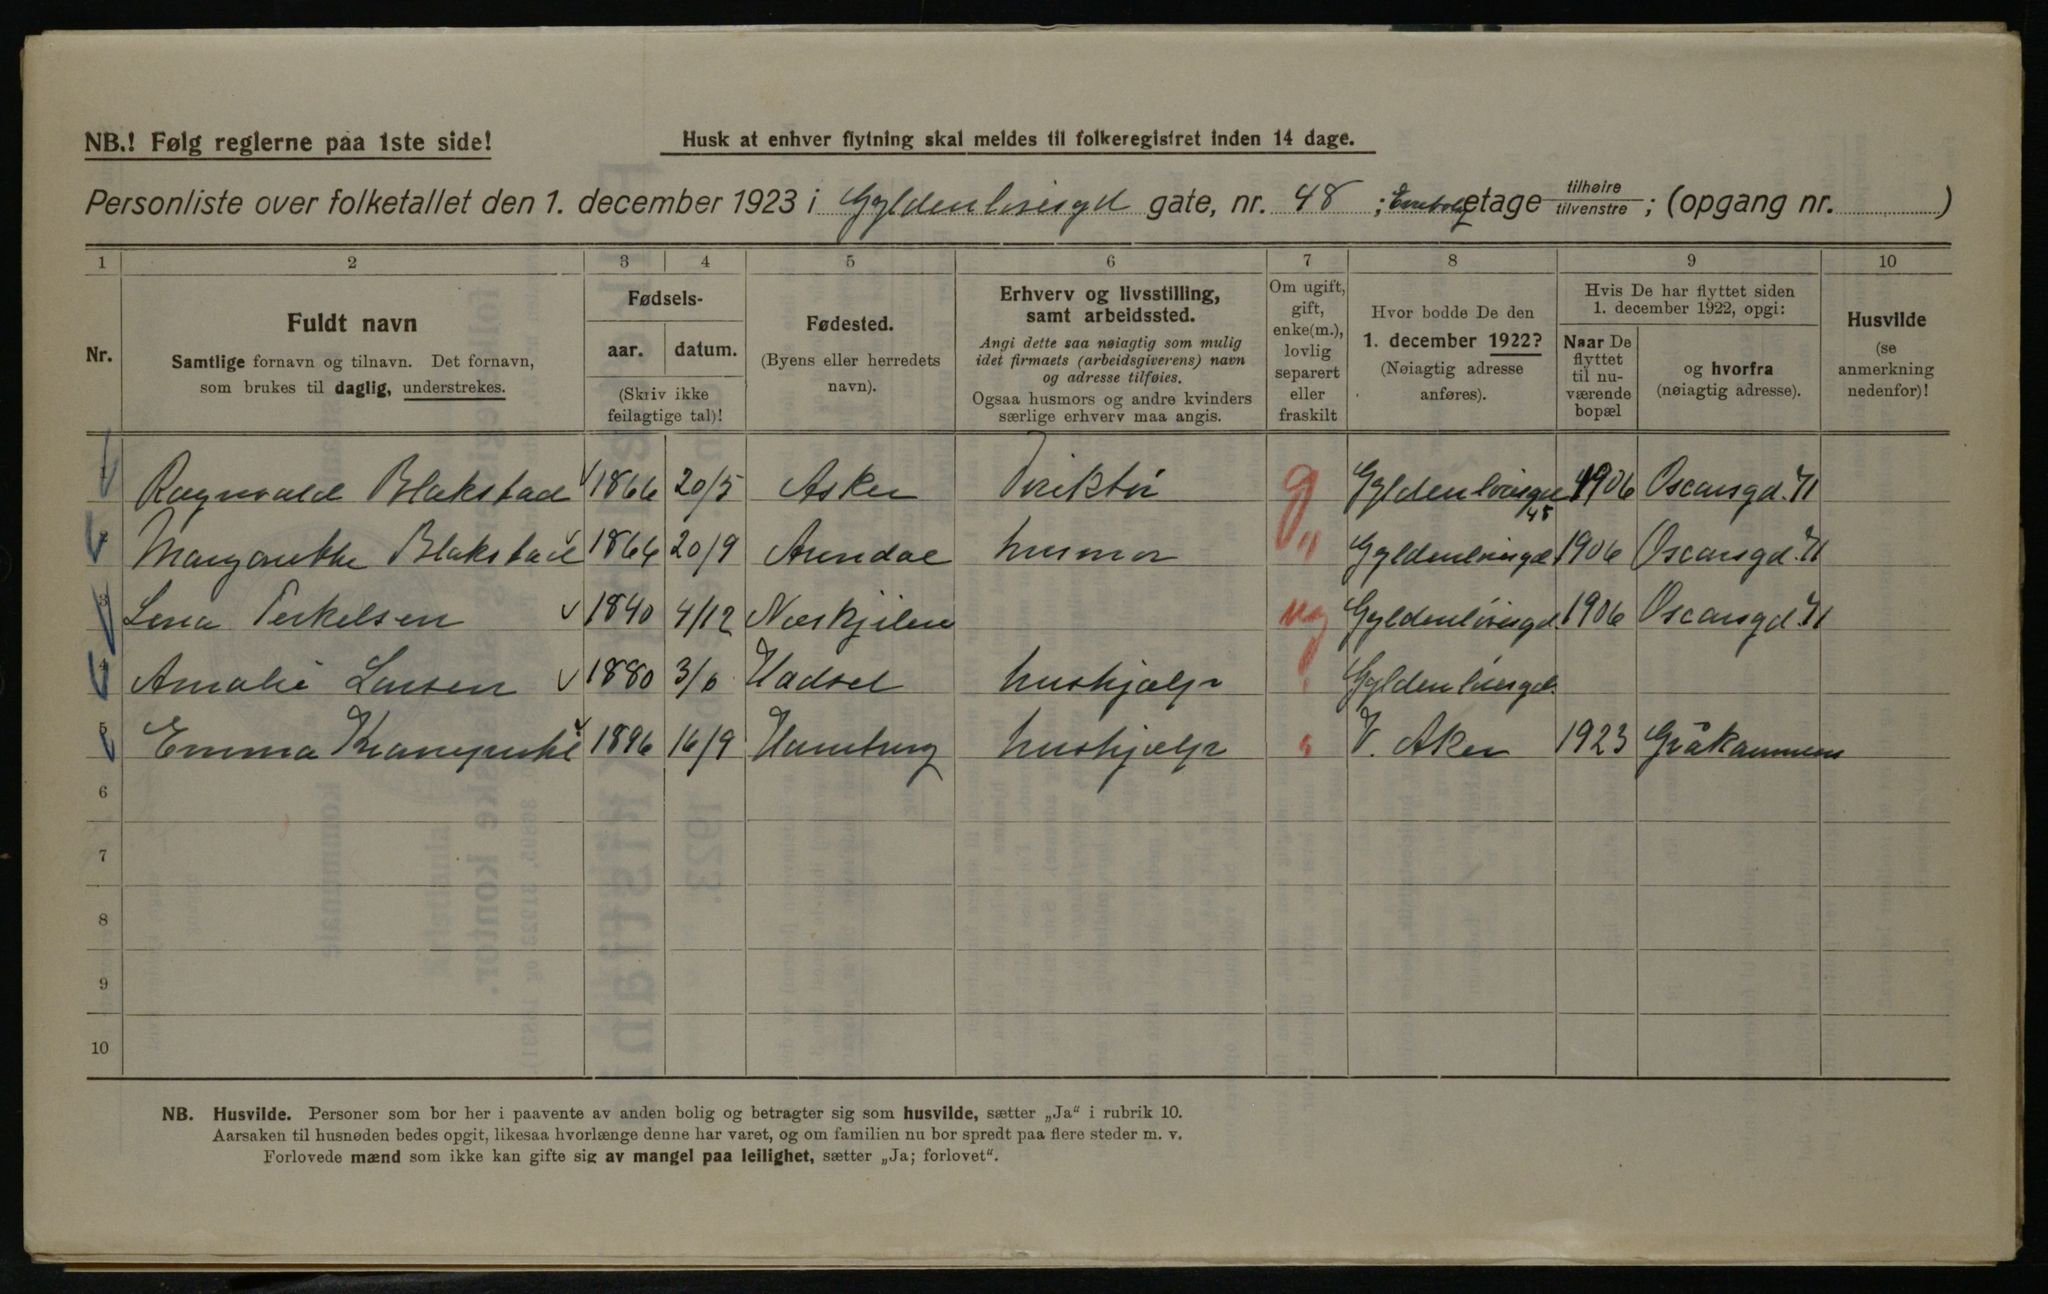 NB.! Følg reglerne paa 1ste side!
Husk at enhver flytning skal meldes til folkeregistret inden 14 dage.
Personliste over folketallet den 1. december 1923 i Gyldenløvesgd gate, nr. 48 ; etage tilhøire tilvenstre ; (opgang nr. )
1 2 3 4 5 6 7 8 9 10
Nr.
Fuldt navn
Samtlige fornavn og tilnavn. Det fornavn,
som brukes til daglig, understrekes.
Fødsels-
aar. datum.
(Skriv ikke
feilagtige tal)!
Fødested.
(Byens eller herredets
navn).
Erhverv og livsstilling,
samt arbeidssted.
Angi dette saa nøiagtig som mulig
idet firmaets (arbeidsgiverens) navn
og adresse tilføies.
Ogsaa husmors og andre kvinders
særlige erhverv maa angis.
Om ugift,
gift,
enke(m.),
lovlig
separert
eller
fraskilt
Hvor bodde De den
1. december 1922?
(Nøiagtig adresse
anføres).
Hvis De har flyttet siden
1. december 1922, opgi:
Naar De
flyttet
til nu-
værende
bopæl
og hvorfra
(nøiagtig adresse).
Husvilde
(se
anmerkning
nedenfor)!
1 Ragnvald Blakstad 1866 20/5 Asker Direktør g Gyldenløvesgd 48 1906 Oscarsgd. 71
2 Margarethe Blakstad 1864 20/9 Arendal husmor " Gyldenløvesgd 1906 Oscarsgd. 71
3 Lena Terkelsen 1840 4/12 Næskjilen ug Gyldenløvesgd. 1906 Oscarsgd. 71
4 Amalie Larsen 1880 3/6 Hadsel hushjælp Gyldenløvesgd.
5 Emma 1896 16/9 Hamburg hushjælp V. Aker 1923 Gråkammens
6
7
8
9
10
NB. Husvilde. Personer som bor her i paavente av anden bolig og betragter sig som husvilde, sætter „Ja“ i rubrik 10.
Aarsaken til husnøden bedes opgit, likesaa hvorlænge denne har varet, og om familien nu bor spredt paa flere steder m. v.
Forlovede mænd som ikke kan gifte sig av mangel paa leilighet, sætter „Ja; forlovet“.